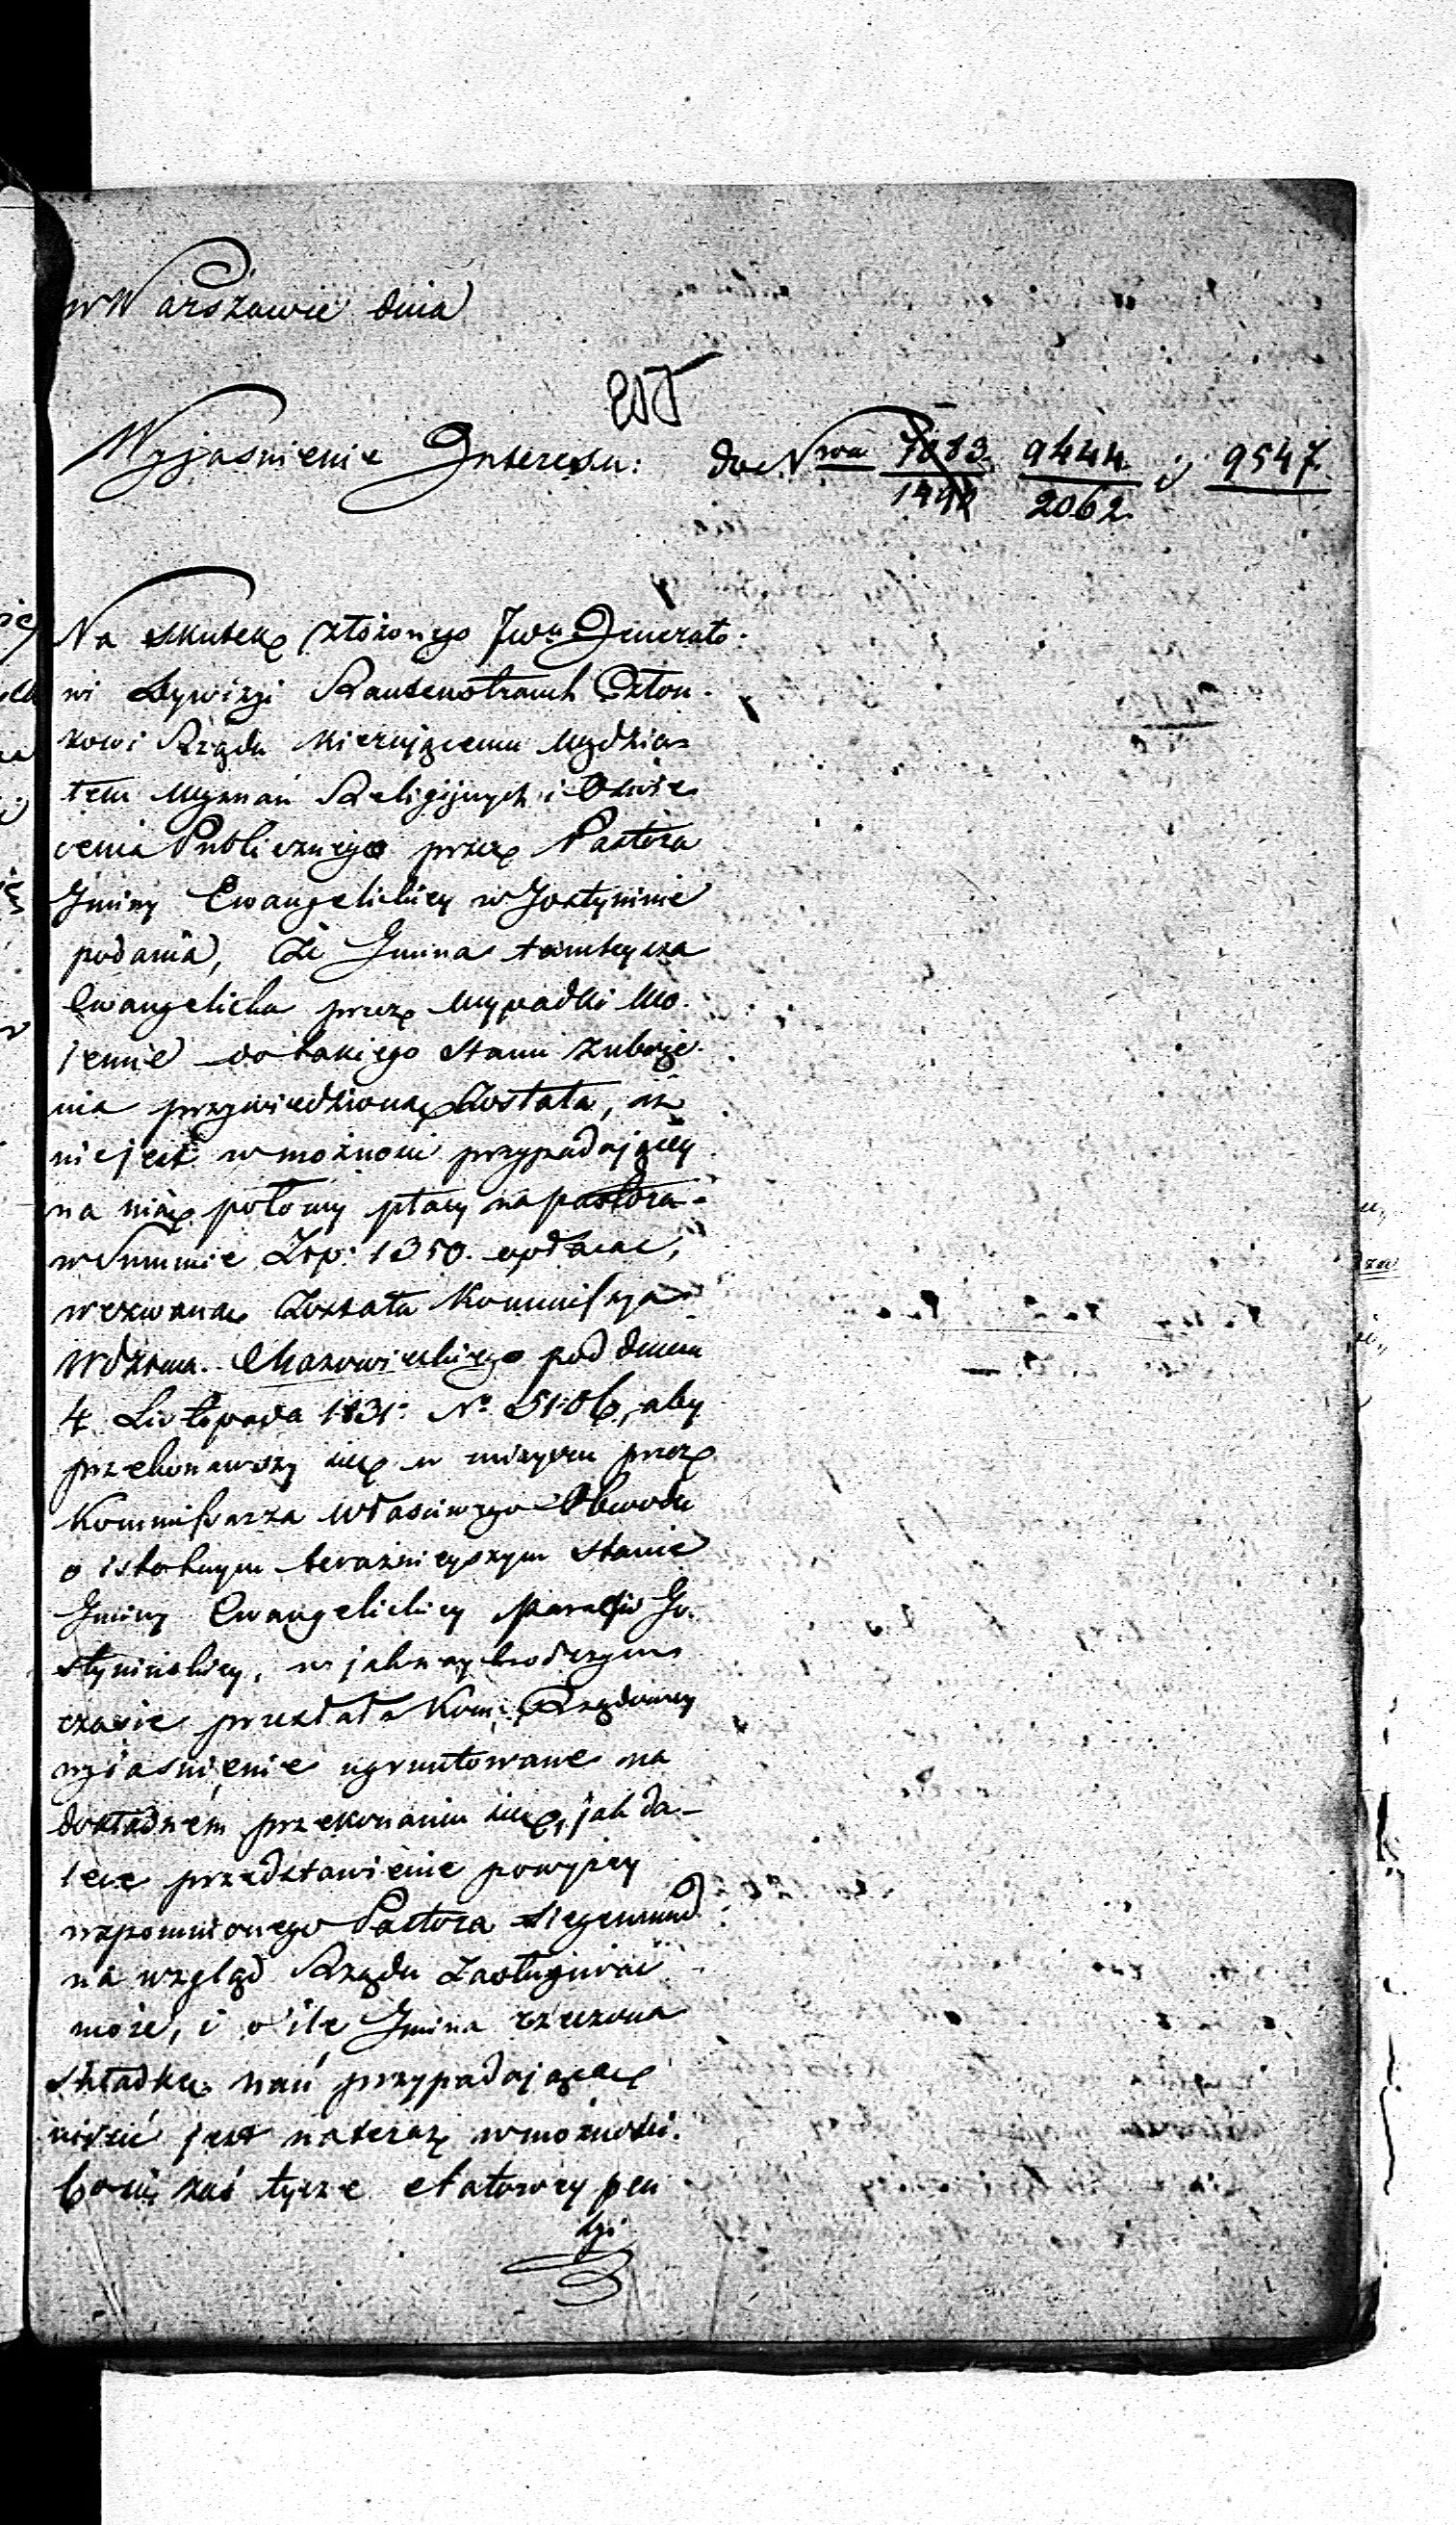 w Warszawie dnia
Wyjaśnienie Interesu: do Nrow 7883/1492 9444/2062 i 9547
Na skutek złożonego JW. Generało-
wi Dywizyi Rautenstrauch Człon-
kowi Rządu kierującemu Wydzia-
łem Wyznań Religijnych i Oświe
cenia Publicznego przez Pastora
Gminy Ewangelickiey w Gostyninie
podania, że Gmina tamteysza
Ewangelicka przez wypadki wo-
jenne do takiego stanu zuboże-
nia przywiedzioną została, iż
nie jest w możności przypadającey
na nią połowy płacy na pastora
w Summie Złp: 1350. opłacać,
wezwaną została Kommissya
Wdztwa Mazowieckiego pod dniem
4 Listopada 1831 No 5106, aby
przekonawszy się w mieyscu przez
Kommissarza właściwego Obwodu
o istotnym teraźnieyszym stanie
Gminy Ewangelickiey Parafii Go-
stynińskiey, w jaknaykrótszym
czasie przesłała Kom: Rządowey
wyjaśnienie ugruntowane na
dokładném przekonaniu się, jak da-
lece przedstawienie powyżey
wspomnionego Pastora Siegemund
na wzgląd Rządu zasługiwać
może, i o ile Gmina rzeczona
składkę nań przypadającą
uiścić jest na teraz w możności.
Co się zaś tycze etatowey pen
syi